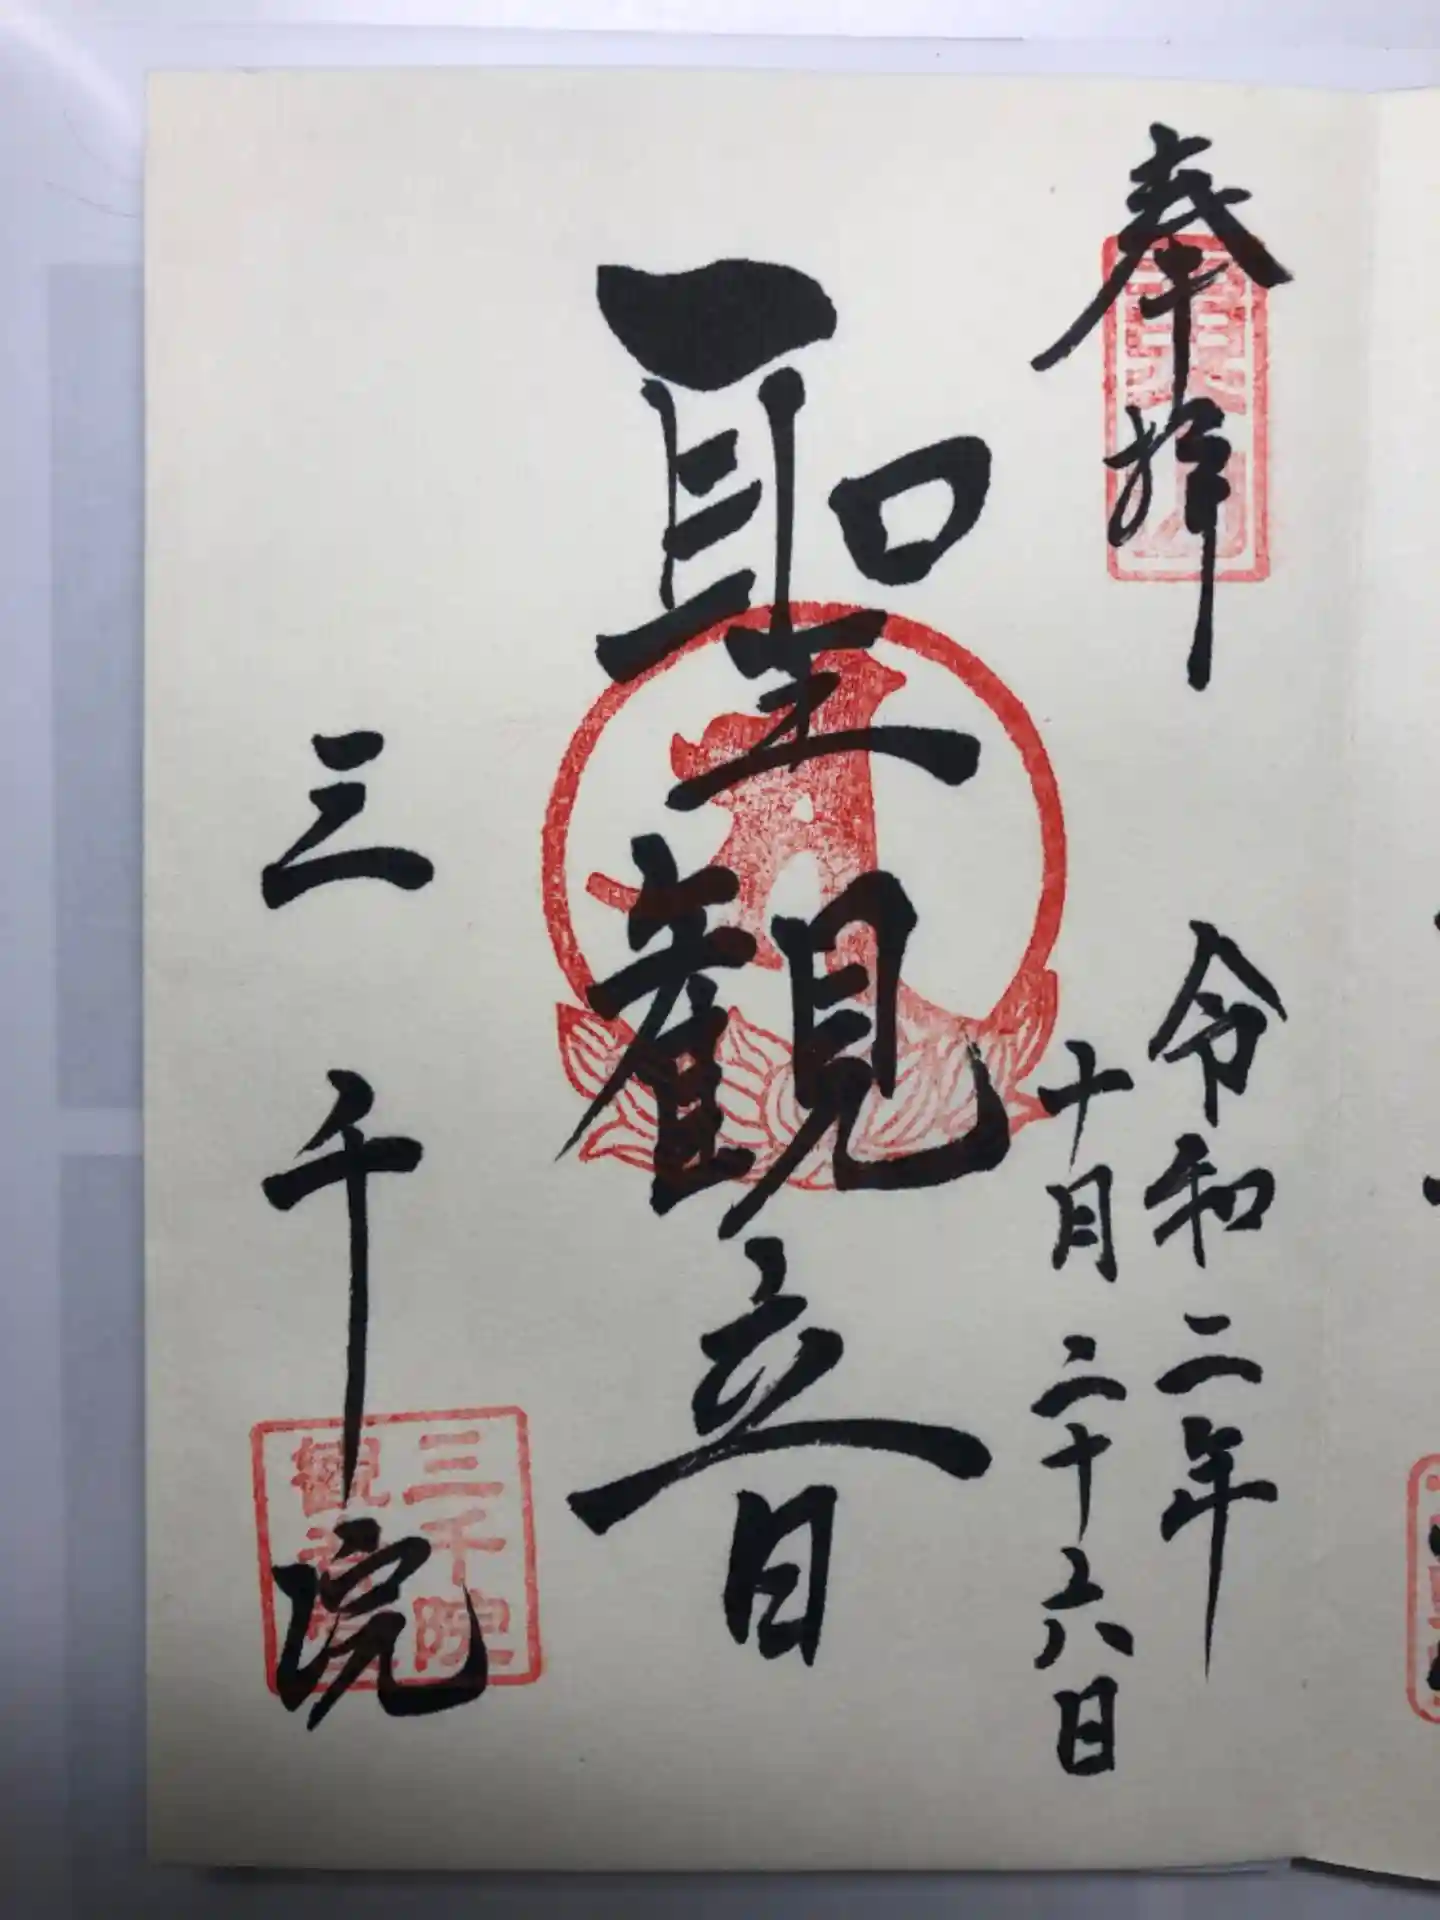 奉拝
令和二年
十月二十六日
聖観音
三千院
三千院